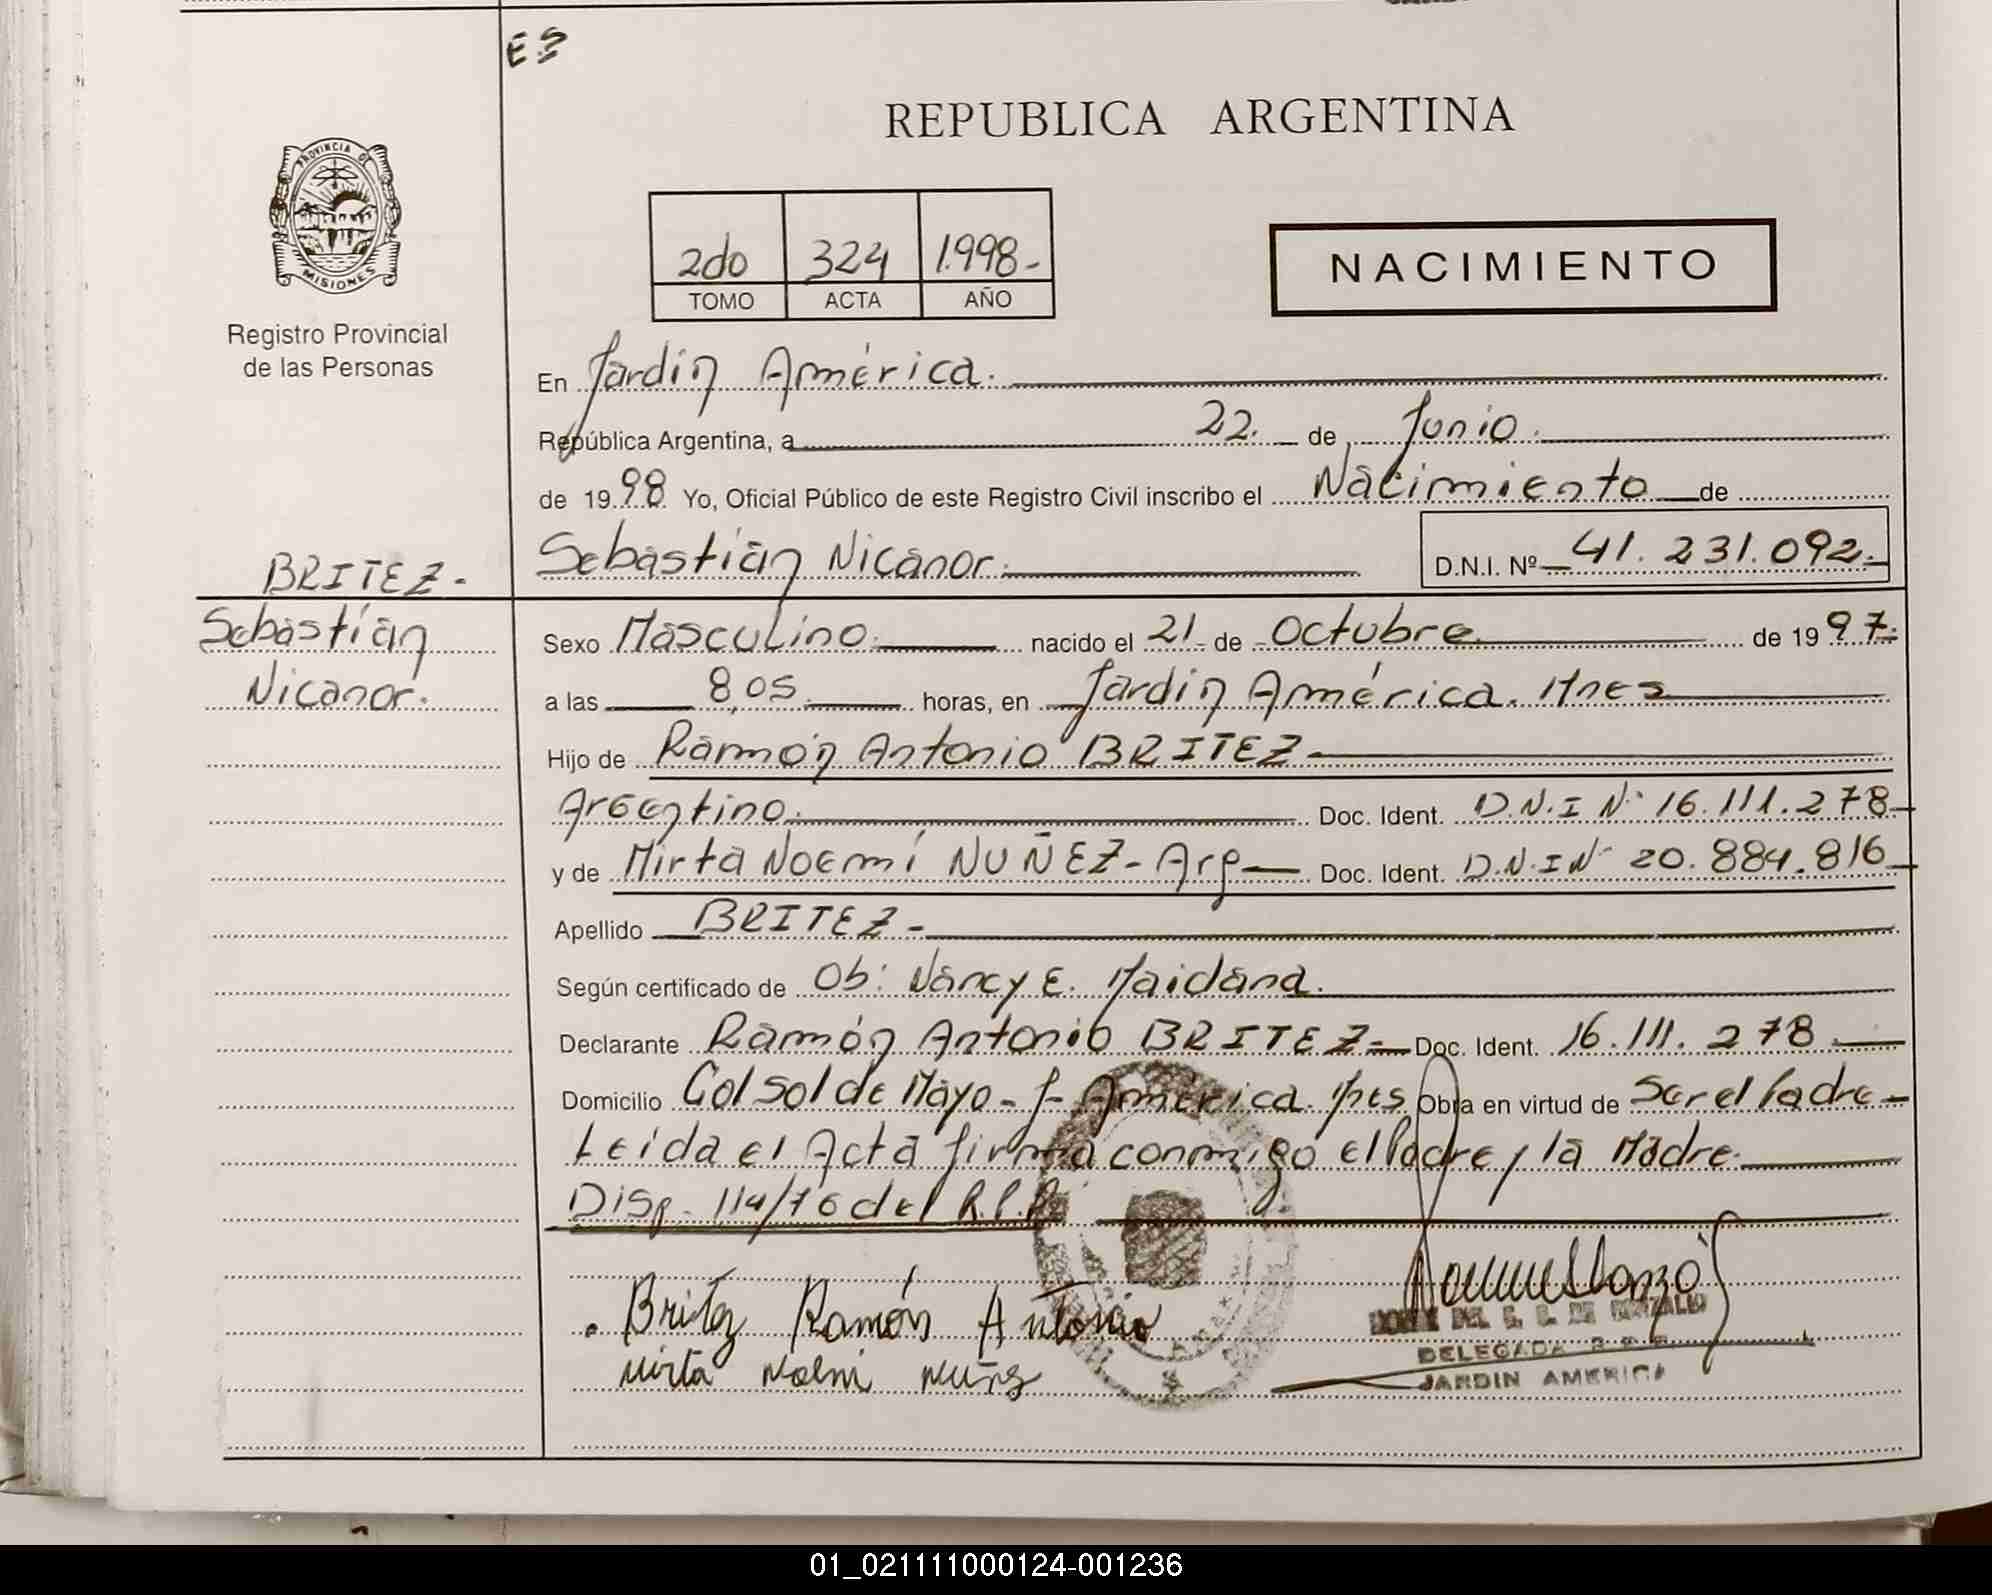 E S
REPUBLICA ARGENTINA
PROVINCIA DE
MISIONES
2do 324 1.998-
TOMO ACTA AÑO
NACIMIENTO
Registro Provincial
de las Personas
En Jardín América.
República Argentina, a 22. de Junio.
de 1998 Yo, Oficial Público de este Registro Civil inscribo el Nacimiento de
Sebastián Nicanor. D.N.I. Nº 41.231.092.-
BRITEZ-
Sebastián
Nicanor.
Sexo Masculino. nacido el 21 de Octubre de 1997.
a las 8,05 horas, en Jardín América. Mnes
Hijo de Ramón Antonio BRITEZ-
Argentino. Doc. Ident. D.N.I Nº 16.111.278-
y de Mirta Noemí NUÑEZ- Arg- Doc. Ident. D.N.I Nº 20.884.816
Apellido BRITEZ-
Según certificado de Ob: Nancy E. Maidana.
Declarante Ramón Antonio BRITEZ- Doc. Ident. 16.111.278
Domicilio Col Sol de Mayo- J- América. Mnes Obra en virtud de Ser el Padre-
Leída el Acta firma conmigo el Padre y la Madre.
Disp. 114/76 del R.P.P.
Britez Ramón Antonio
Mirta Noemi Nuñez
DELEGADA
JARDIN AMERICA
01_021111000124-001236